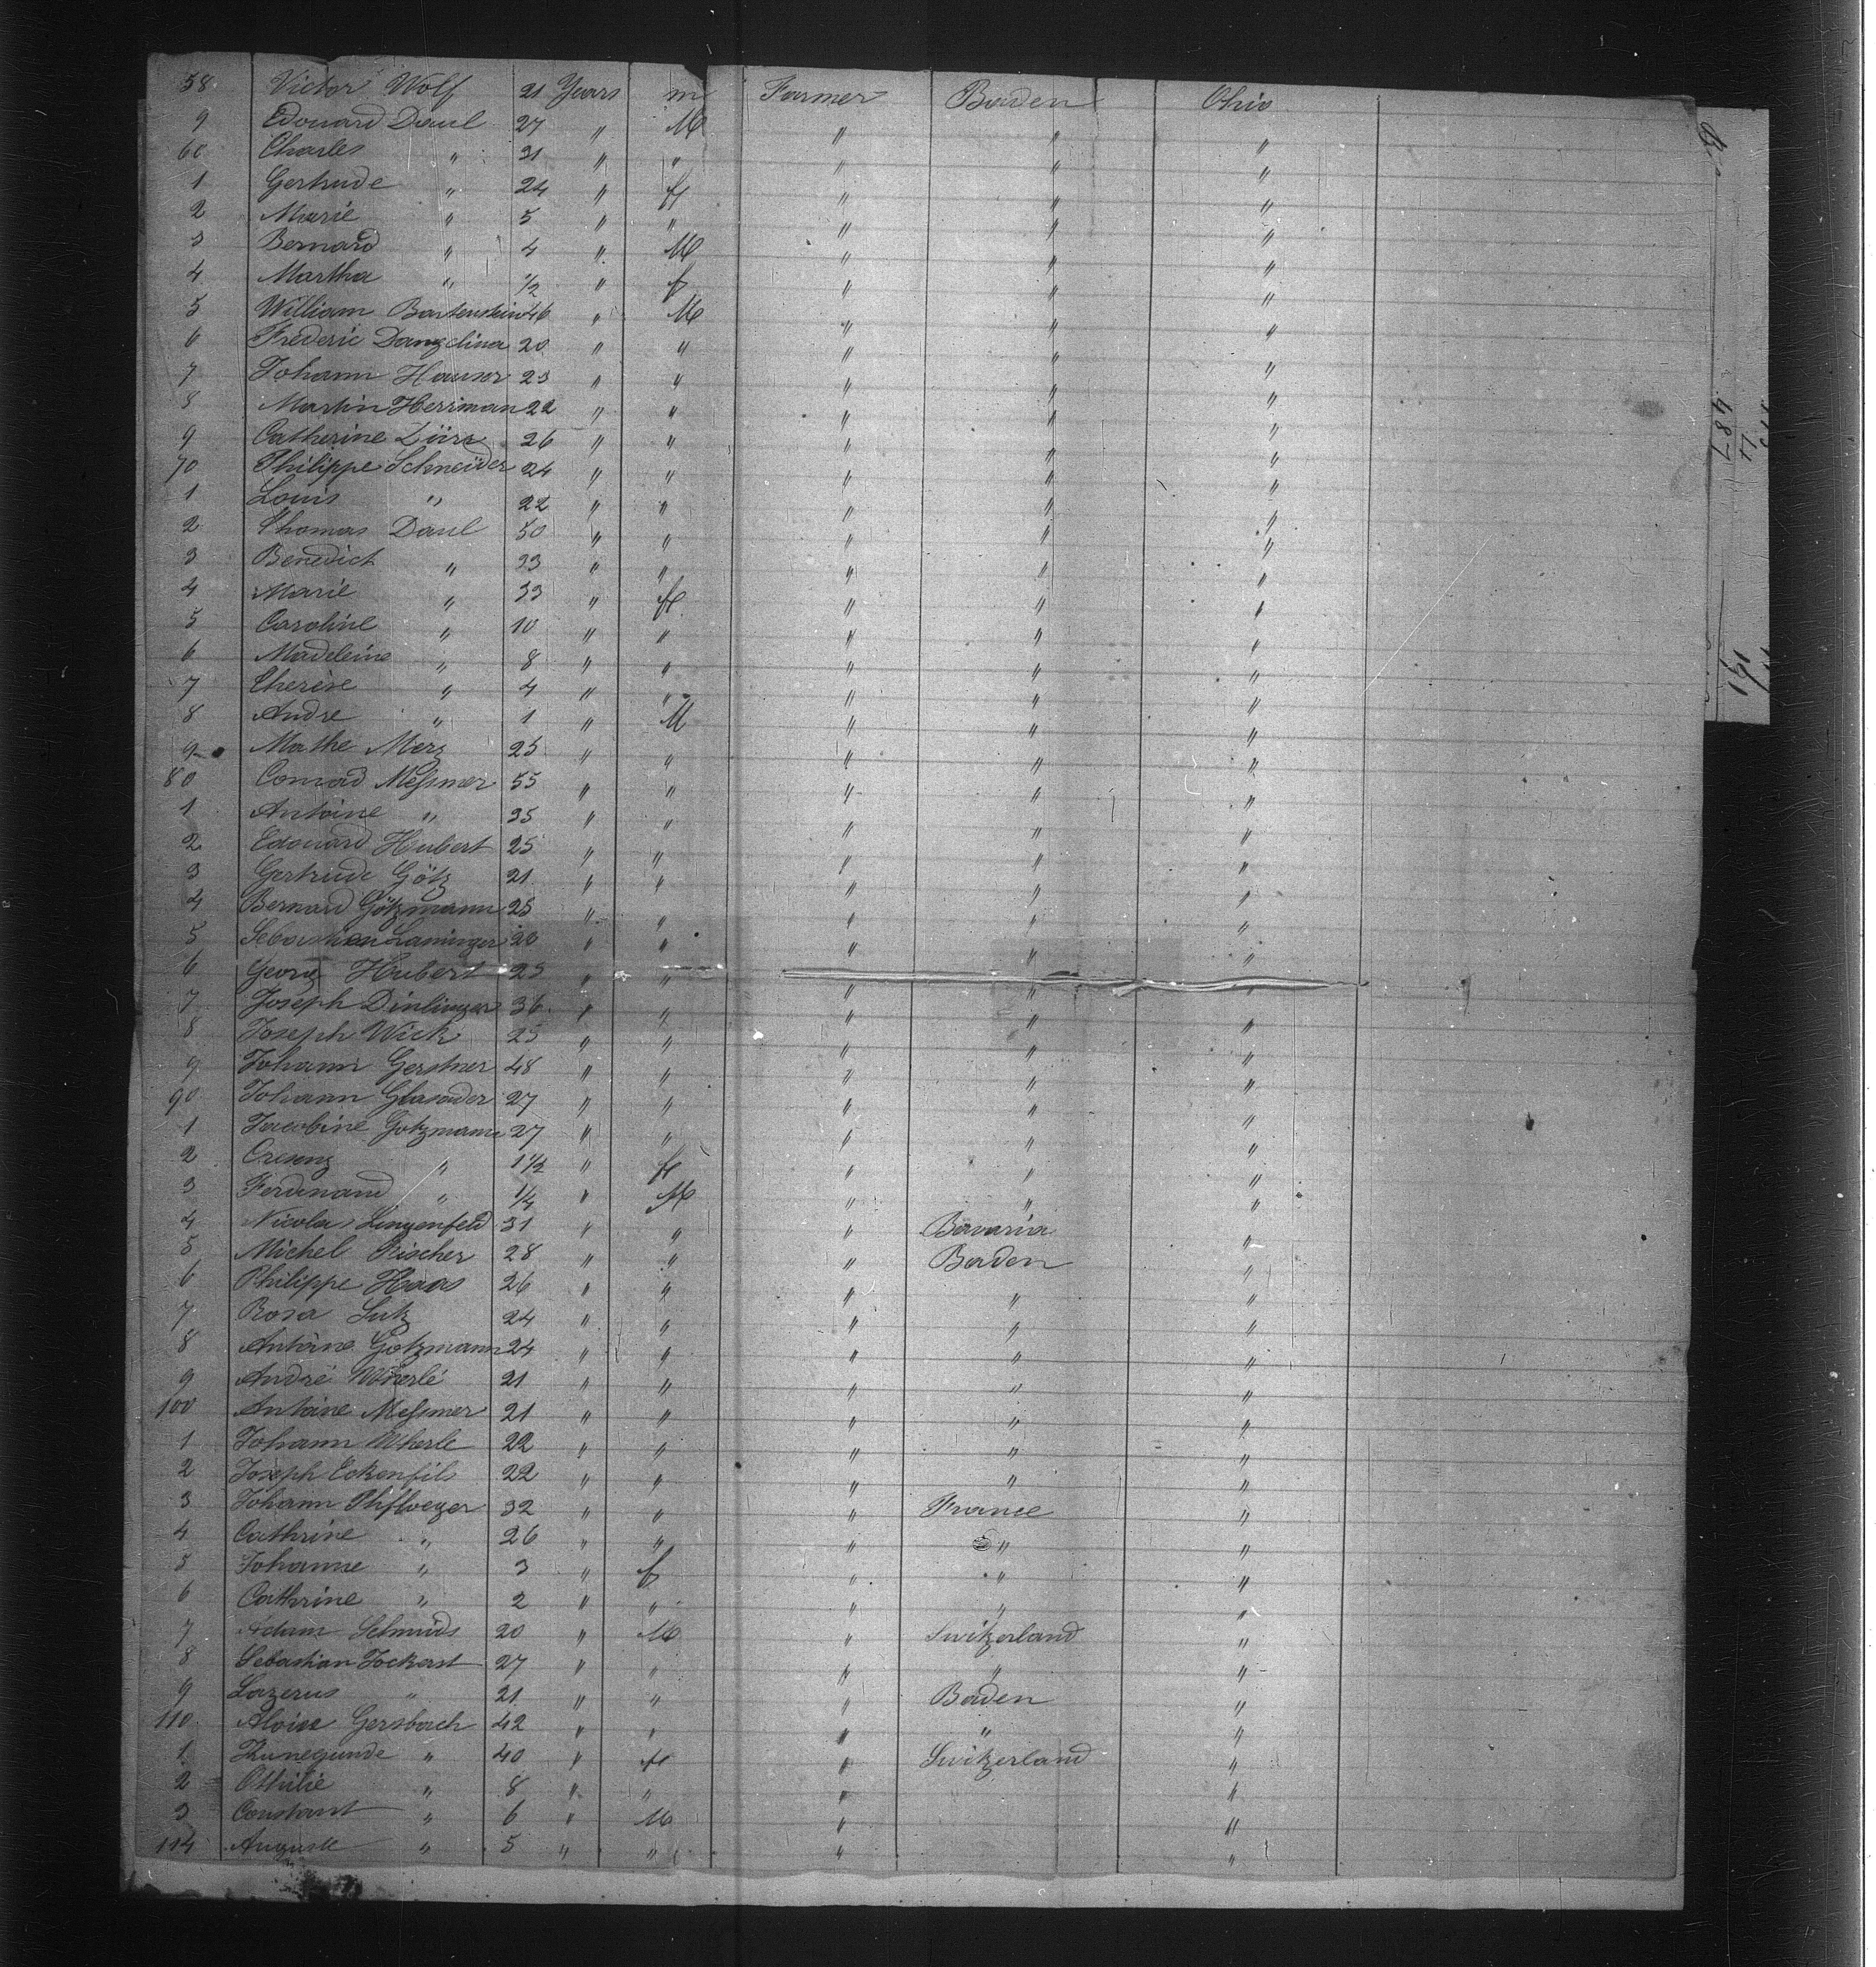 58 Victor Wolf 21 Years m Farmer Baden Ohio
9 Edouard Daul 27 " M " " "
60 Charles " 31 " " " " "
1 Gertrude " 24 " f " " "
2 Marie " 5 " " " " "
3 Bernard " 4 " M " " "
4 Martha " 1/2 " f " " "
5 William Bartenstein 46 " M " " "
6 Frederic 20 " " " " "
7 Johann Hauser 23 " " " " "
8 Martin Herriman 22 " " " " "
9 Catherine 26 " " " " "
70 Philippe Schneider 24 " " " " "
1 Louis " 22 " " " " "
2 Thomas Daul 50 " " " " "
3 Benedict " 33 " " " " "
4 Marie " 33 " f " " "
5 Caroline " 10 " " " " "
6 Madeleine " 8 " " " " "
7 Therese " 4 " " " " "
8 Andre " 1 " M " " "
9 Mathe Merz 25 " " " " "
80 Conrad Meßmer 55 " " " " "
1 Antoine " 35 " " " " "
2 Edouard Hubert 25 " " " " "
3 Gertrude Götz 21 " " " " "
4 Bernard Götzmann 25 " " " " "
5 Sebastian Laminger 20 " " " " "
6 Georg Hubert 25 " " " " "
7 Joseph Dinlinger 36 " " " " "
8 Joseph Wick 25 " " " " "
9 Johann Gerstner 48 " " " " "
90 Johann 27 " " " " "
1 Jacobine Gotzmann 27 " " " " "
2 Cresenz " 1 1/2 " f " " "
3 Ferdinand " 1/4 " M " " "
4 Nicolas Lingenfeld 31 " " " Bavaria "
5 Michel Fischer 28 " " " Baden "
6 Philippe Haas 26 " " " " "
7 Rosa Lutz 24 " " " " "
8 Antoine Gotzmann 24 " " " " "
9 André Wherlé 21 " " " " "
100 Antoine Meßmer 21 " " " " "
1 Johann Wherle 22 " " " " "
2 Joseph Eckenfils 22 " " " " "
3 Johann 32 " " " France "
4 Cathrine " 26 " " " " "
5 Johanne " 3 " f " " "
6 Cathrine " 2 " " " " "
7 Adam Schmids 20 " M " Switzerland "
8 Sebastian Jockerst 27 " " " " "
9 Lazerus " 21 " " " Baden "
110 Aloise Gersbach 42 " " " " "
1 Kunegunde " 40 " f " Switzerland "
2 Othilie " 8 " " " "
3 Constant " 6 " M " "
114 Auguste " 5 " " " "
487